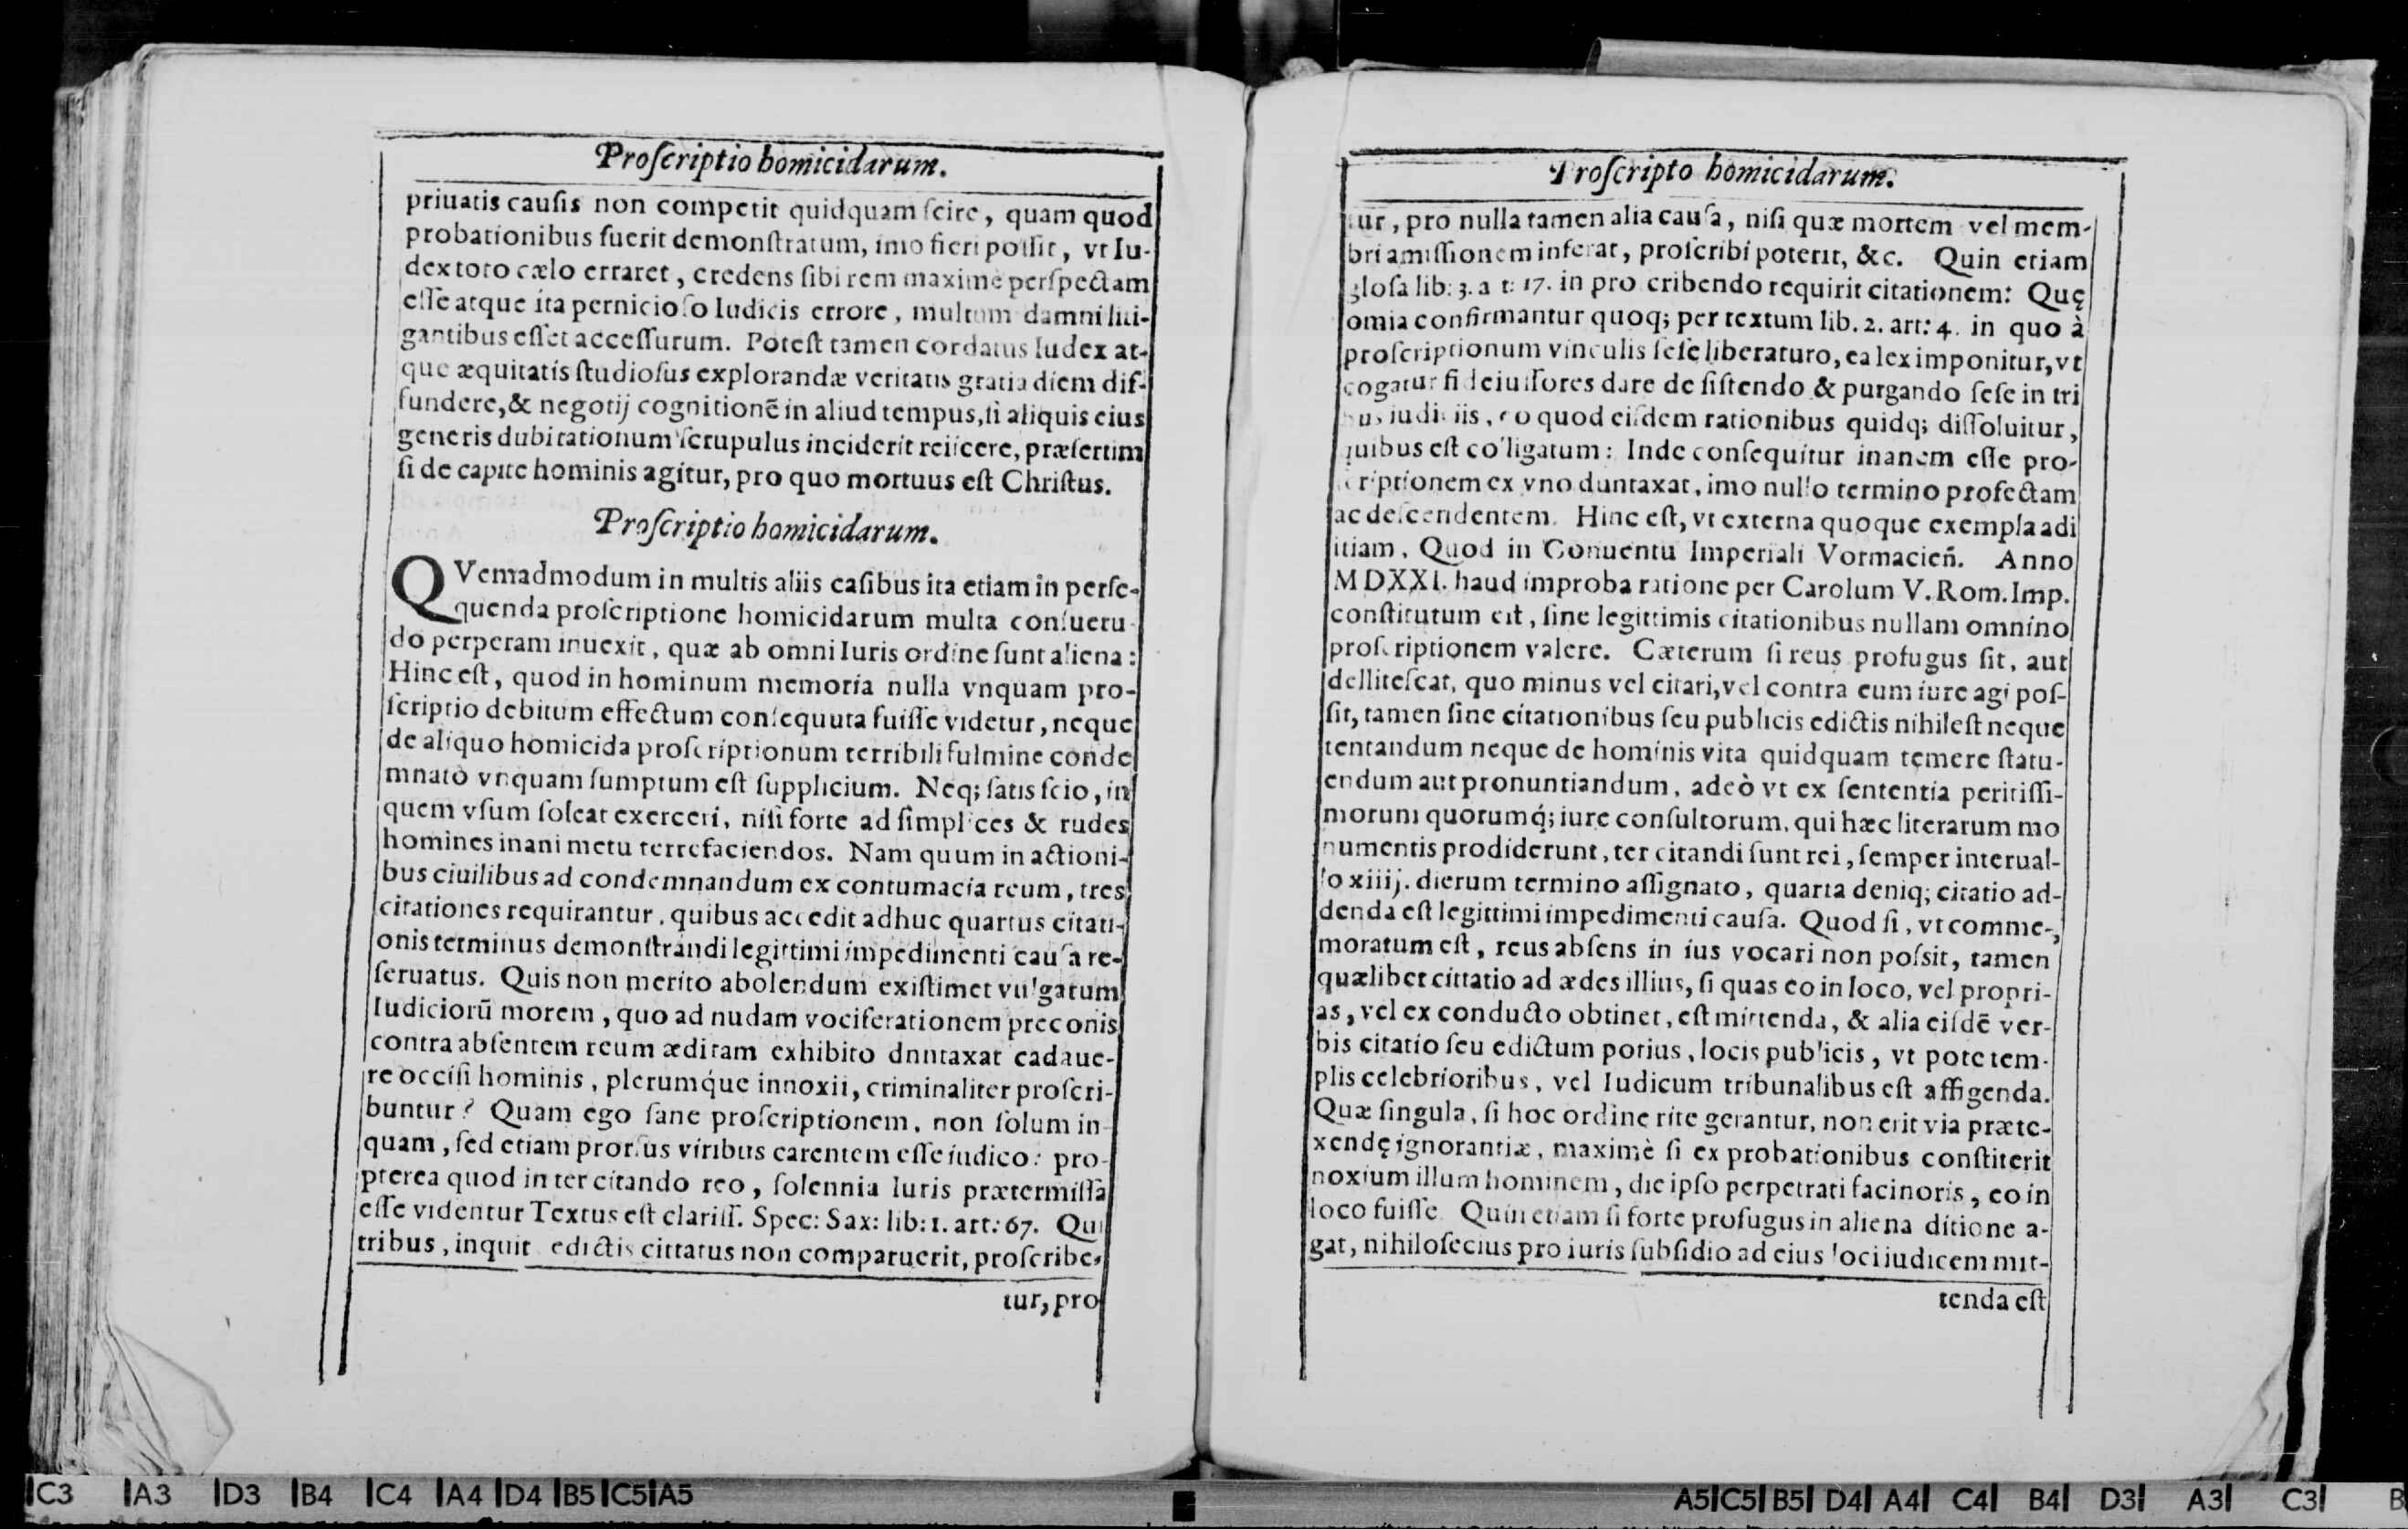 Proſcriptio homicidarum.
priuatis cauſis non competit quidquam ſcire, quam quod
probationibus fuerit demonſtratum, imo fieri poſſit, vt Iu-
dex toto cælo erraret, credens ſibi rem maximè perſpectam
eſſe atque ita pernicioſo Iudicis errore, multum damni liti-
gantibus eſſet acceſſurum. Poteſt tamen cordatus Iudex at-
que æquitatis ſtudioſus explorandæ veritatis gratia diem dif-
fundere,& negotij cognitionē in aliud tempus,ſi aliquis eius
generis dubitationum ſcrupulus inciderit reiicere, præſertim
ſi de capite hominis agitur, pro quo mortuus eſt Chriſtus.
Proſcriptio homicidarum.
QVemadmodum in multis aliis caſibus ita etiam in perſe-
quenda proſcriptione homicidarum multa conſuetu-
do perperam inuexit, quæ ab omni Iuris ordine ſunt aliena:
Hinc eſt, quod in hominum memoria nulla vnquam pro-
ſcriptio debitum effectum conſequuta fuiſſe videtur, neque
de aliquo homicida proſcriptionum terribili fulmine conde
mnato vnquam ſumptum eſt ſupplicium. Neq; ſatis ſcio, in
quem vſum ſoleat exerceri, niſi forte ad ſimplices & rudes
homines inani metu terrefaciendos. Nam quum in actioni-
bus ciuilibus ad condemnandum ex contumacia reum, tres
citationes requirantur, quibus accedit adhuc quartus citati-
onis terminus demonſtrandi legittimi impedimenti cauſa re-
ſeruatus. Quis non merito abolendum exiſtimet vulgatum
Iudiciorū morem, quo ad nudam vociferationem preconis
contra abſentem reum æditam exhibito dnntaxat cadaue-
re occiſi hominis, plerumq́ue innoxii, criminaliter proſcri-
buntur? Quam ego ſane proſcriptionem, non ſolum in-
quam, ſed etiam prorſus viribus carentem eſſe iudico: pro-
pterea quod in ter citando reo, ſolennia Iuris prætermiſſa
eſſe videntur Textus eſt clariſſ. Spec: Sax: lib: 1. art: 67. Qui
tribus, inquit edictis cittatus non comparuerit, proſcribe-
tur, pro
Proſcripto homicidarum.
tur, pro nulla tamen alia cauſa, niſi quæ mortem vel mem-
bri amiſſionem inferat, proſcribi poterit, &c. Quin etiam
gloſa lib: 3. a t: 17. in pro cribendo requirit citationem: Quę
omia confirmantur quoq; per textum lib. 2. art: 4. in quo à
proſcriptionum vinculis ſeſe liberaturo, ea lex imponitur, vt
cogatur fideiuſſores dare de ſiſtendo & purgando ſeſe in tri
bus iudiciis, eo quod eiſdem rationibus quidq; diſſoluitur,
quibus eſt colligatum: Inde conſequitur inanem eſſe pro-
ſcriptionem ex vno duntaxat, imo nullo termino profectam
ac deſcendentem. Hinc eſt, vt externa quoque exempla adi
itiam, Quod in Conuentu Imperiali Vormacieñ. Anno
MDXXI. haud improba ratione per Carolum V. Rom. Imp.
conſtitutum eſt, ſine legittimis citationibus nullam omnino
proſcriptionem valere. Cæterum ſi reus profugus ſit, aut
delliteſcat, quo minus vel citari, vel contra eum iure agi poſ-
ſit, tamen ſine citationibus ſeu publicis edictis nihil eſt neque
tentandum neque de hominis vita quidquam temere ſtatu-
endum aut pronuntiandum, adeò vt ex ſententia peritiſſi-
morum quorumq́; iure conſultorum, qui hæc literarum mo
numentis prodiderunt, ter citandi ſunt rei, ſemper interual-
lo xiiij. dierum termino aſſignato, quarta deniq; citatio ad-
denda eſt legittimi impedimenti cauſa. Quod ſi, vt comme-
moratum eſt, reus abſens in ius vocari non poſsit, tamen
quælibet cittatio ad ædes illius, ſi quas eo in loco, vel propri-
as, vel ex conducto obtinet, eſt mittenda, & alia eiſdē ver-
bis citatio ſeu edictum potius, locis publicis, vt pote tem-
plis celebrioribus, vel Iudicum tribunalibus eſt affigenda.
Quæ ſingula, ſi hoc ordine rite gerantur, non erit via præte-
xendę ignorantiæ, maximè ſi ex probationibus conſtiterit
noxium illum hominem, die ipſo perpetrati facinoris, eo in
loco fuiſſe. Quin etiam ſi forte profugus in aliena ditione a-
gat, nihiloſecius pro iuris ſubſidio ad eius loci iudicem mit-
tenda eſt
C3 A3 D3 B4 C4 A4 D4 B5 C5 A5
A5 C5 B5 D4 A4 C4 B4 D3 A3 C3 B